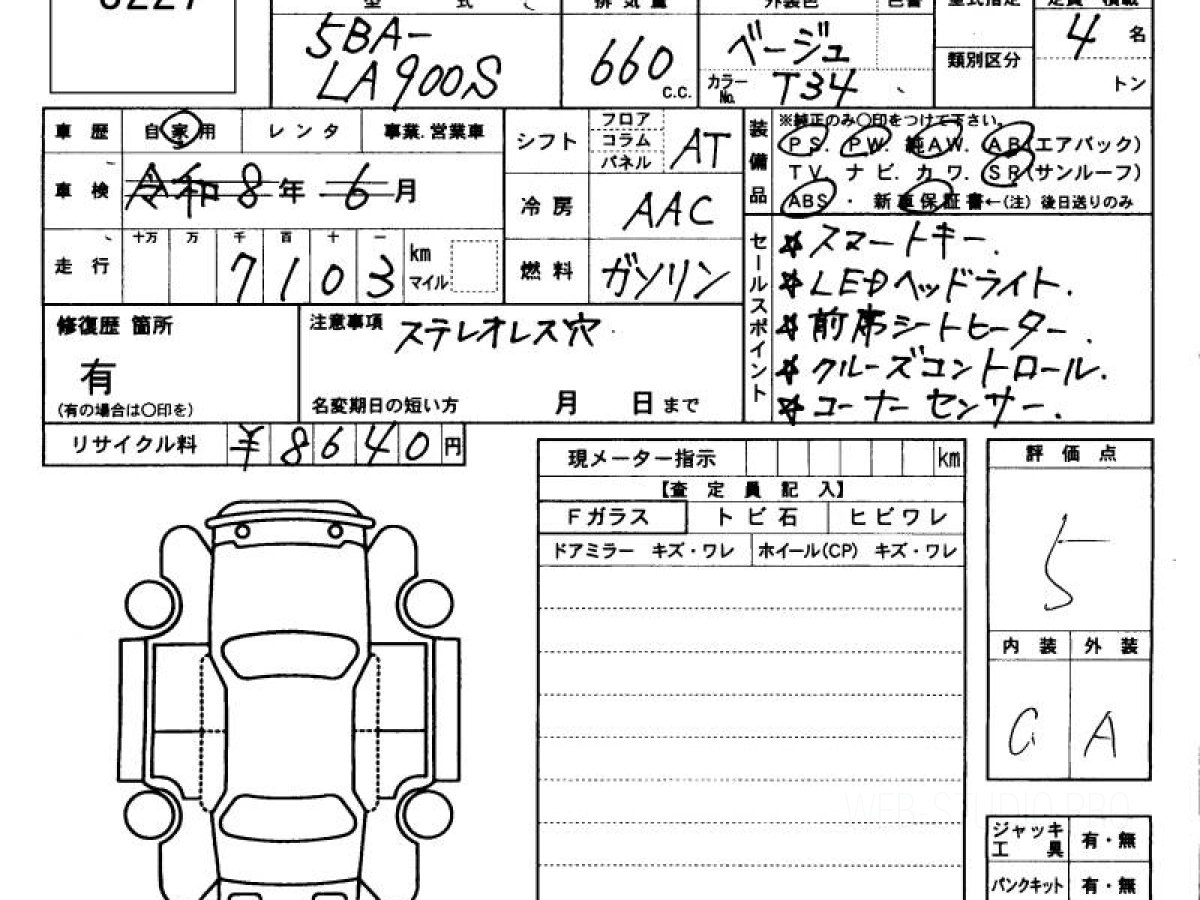 5BA-
LA900S
660
c.c.
ベージュ
カラー
No.
T34
類別区分
4 名
トン
車歴 自家用 レンタ 事業.営業車
車検 令和8年 6月
走行 十万 万 千 百 十 一
7103
km
マイル
シフト フロア
コラム
パネル
AT
冷房 AAC
燃料 ガソリン
装備品
※純正のみ○印をつけて下さい。
PS. PW. 純AW. AB(エアバック)
TV ナビ. カワ. SR(サンルーフ)
ABS ・ 新車保証書←(注) 後日送りのみ
セールスポイント
☆スマートキー.
☆LEDヘッドライト.
☆前席シートヒーター.
☆クルーズコントロール.
☆コーナーセンサー.
修復歴 箇所
有
(有の場合は○印を)
注意事項 ステレオレス穴
名変期日の短い方 月 日まで
リサイクル料 ¥8640円
現メーター指示 km
【査定員記入】
Fガラス トビ石 ヒビワレ
ドアミラー キズ・ワレ ホイール(CP) キズ・ワレ
評価点
5
内装 外装
C A
WEB-STUDIO.PRO
ジャッキ
工具 有・無
パンクキット 有・無